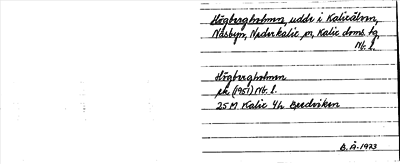 Högbergholmen, udde i Kalixälven,
Näsbyn, Nederkalix sn, Kalix doms. tg,
Nb. l.
Högbergholmen
ek. (1951) Nb. l.
25 M Kalix 4h Bredviken
B. Å. 1973